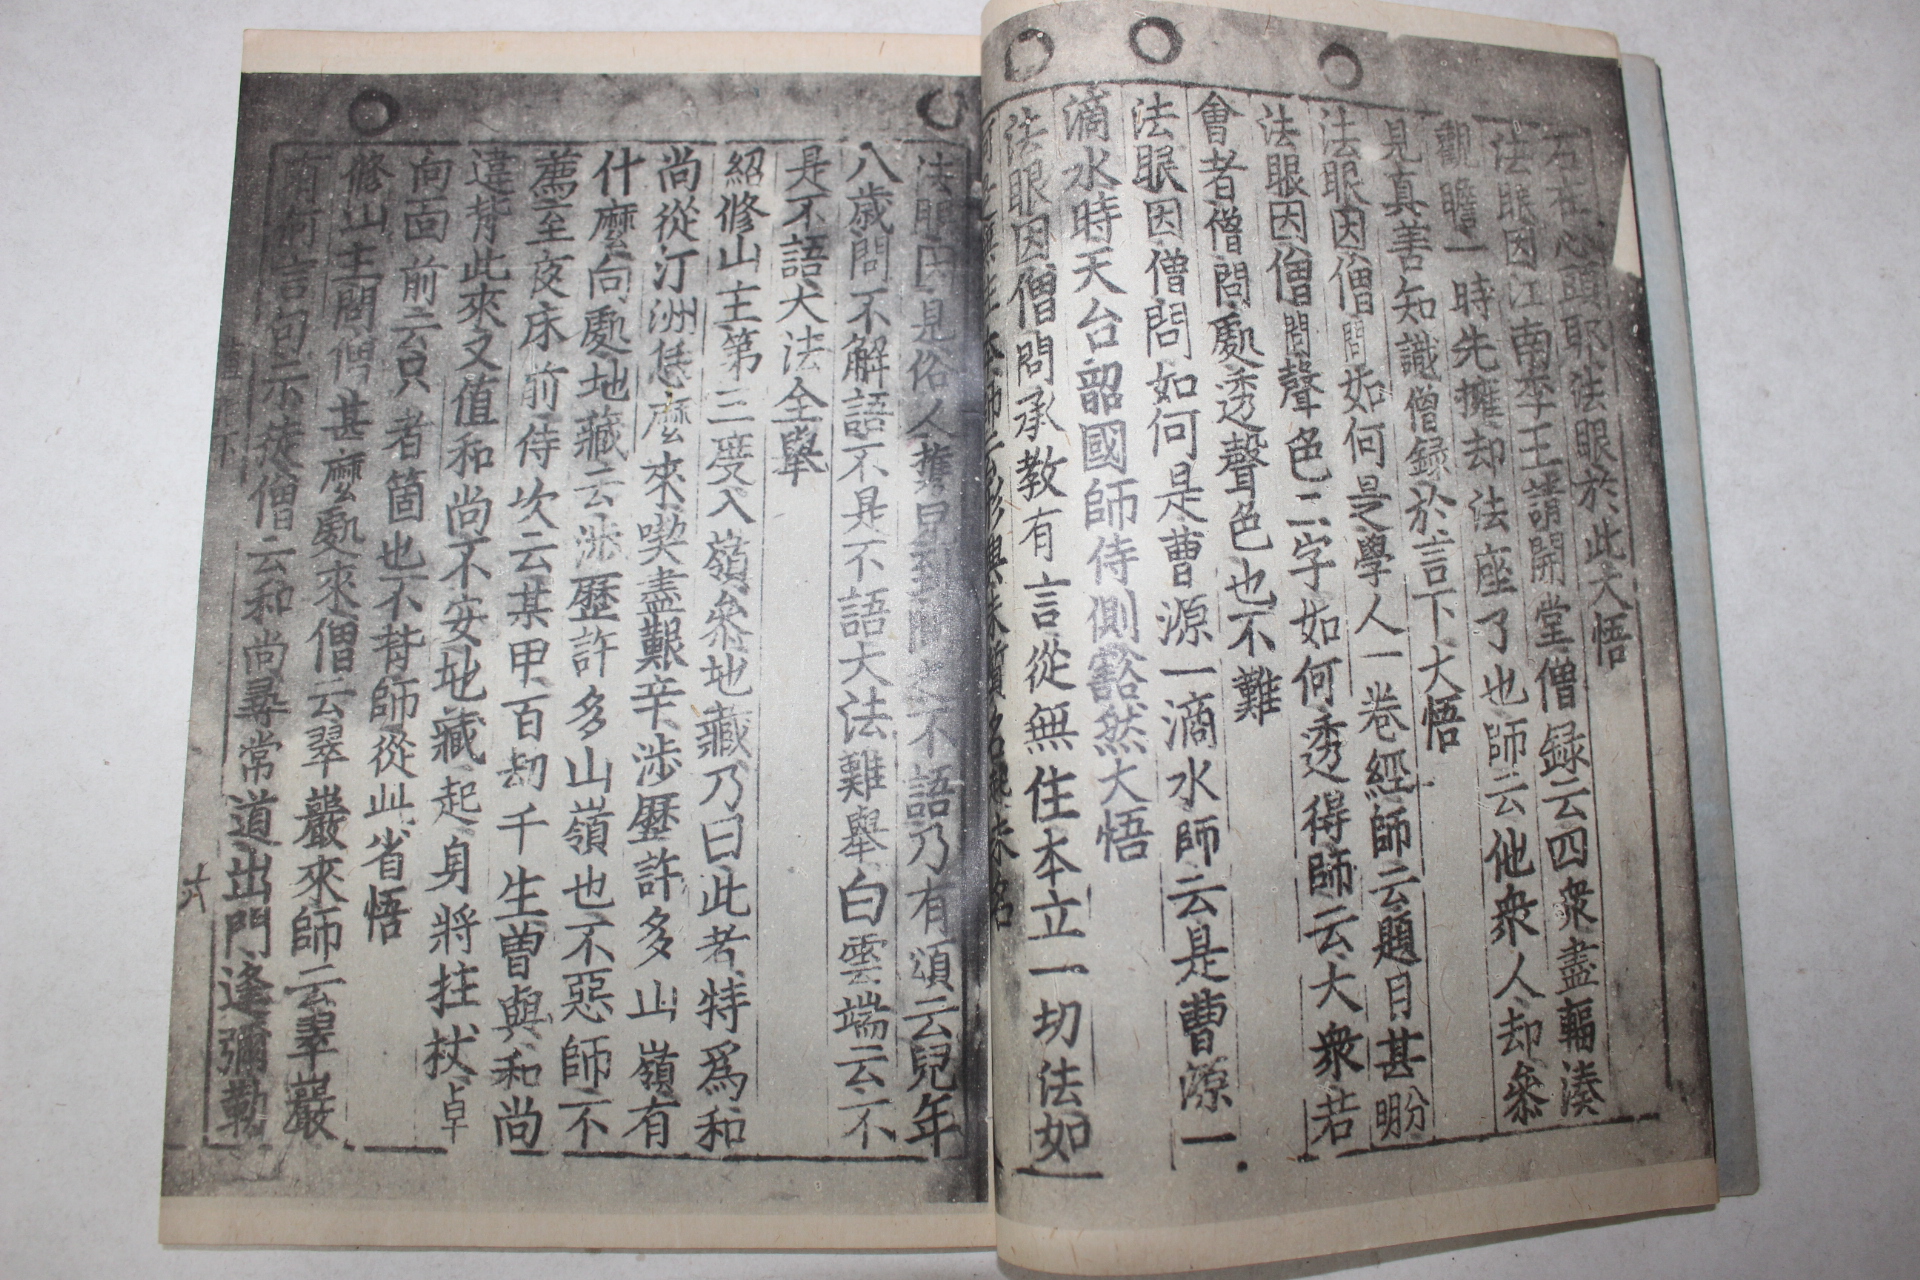 石在心頭耶法眼於此大悟
法眼因江南李王請開堂僧録云四衆盡輻湊
觀瞻一時先擁却法座了也師云他衆人却叅
見真善知識僧録於言下大悟
法眼因僧問如何是學人一卷經師云題目甚分明
法眼因僧問聲色二字如何透得師云大衆若
會者僧問處透聲色也不難
法眼因僧問如何是曹源一滴水師云是曹源一
滴水時天台韶國師侍側豁然大悟
法眼因僧問承教有言從無住本立一切法如
法眼因見俗人
不語乃有頌云兒年
八歲問不解語不是不語大法難舉白雲端云不
是不語大法全舉
紹修山主第三度入嶺叅地藏乃曰此者特爲和
尚從汀洲恁麽來喫盡艱辛涉歷許多山嶺有
什麽向處地藏云涉歷許多山嶺也不惡師不
薦至夜床前侍次云某甲百劫千生曽與和尚
違背此來又值和尚不安地藏起身將拄杖卓
向面前云只者箇也不背師從此省悟
修山主問僧甚麽處來僧云翠巖來師云翠巖
有何言句示徒僧云和尚尋常道出門逢彌勒